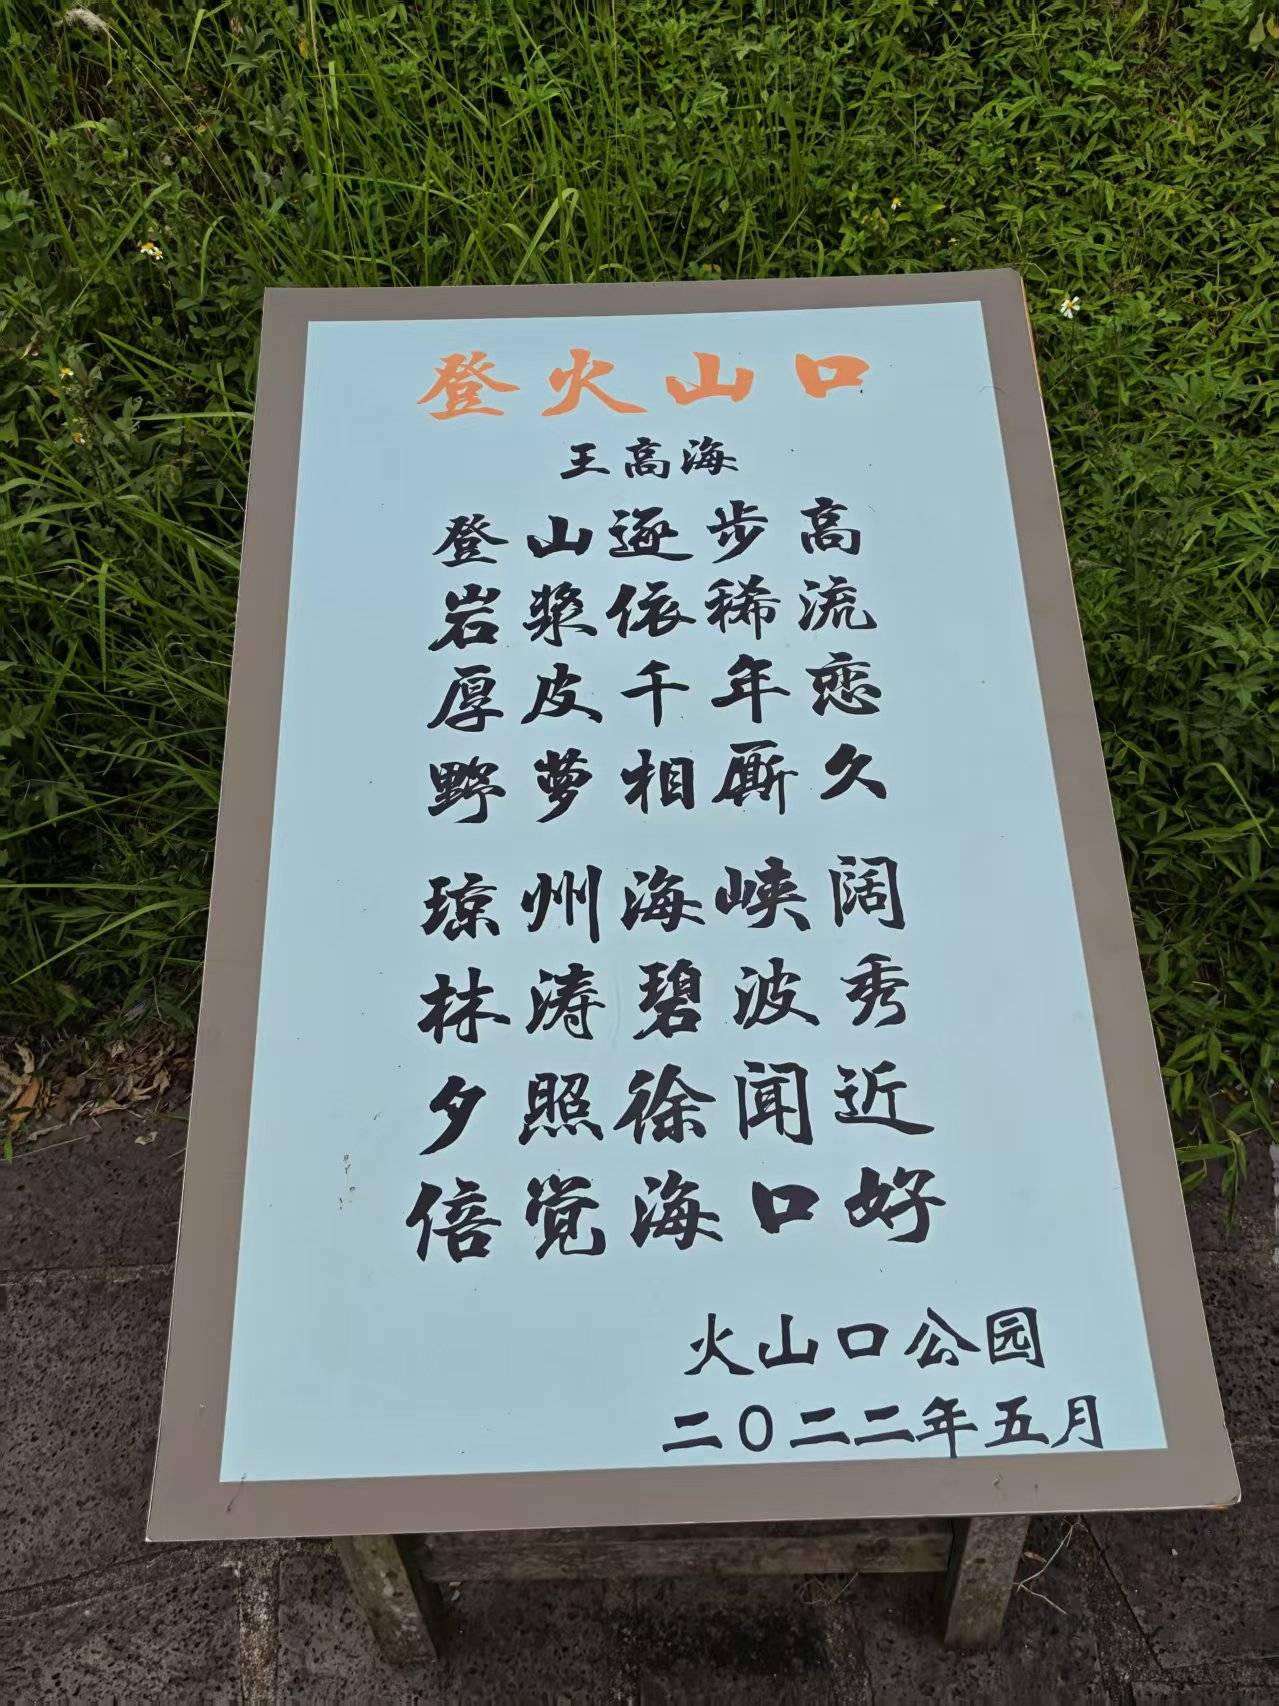 登火山口
王高海
登山逐步高
岩浆依稀流
厚皮千年恋
野萝相厮久
琼州海峡阔
林涛碧波秀
夕照徐闻近
倍觉海口好
火山口公园
二〇二二年五月